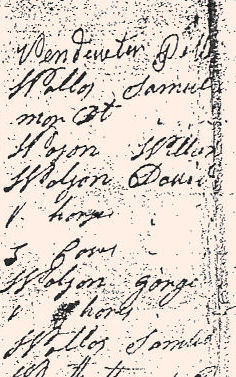 Vendeveter
Wallos Samuel
mor at
Wason Willim
Watson David
1 horse
3 Cows
Watson Gorge
1 hors
Wallos Samuel